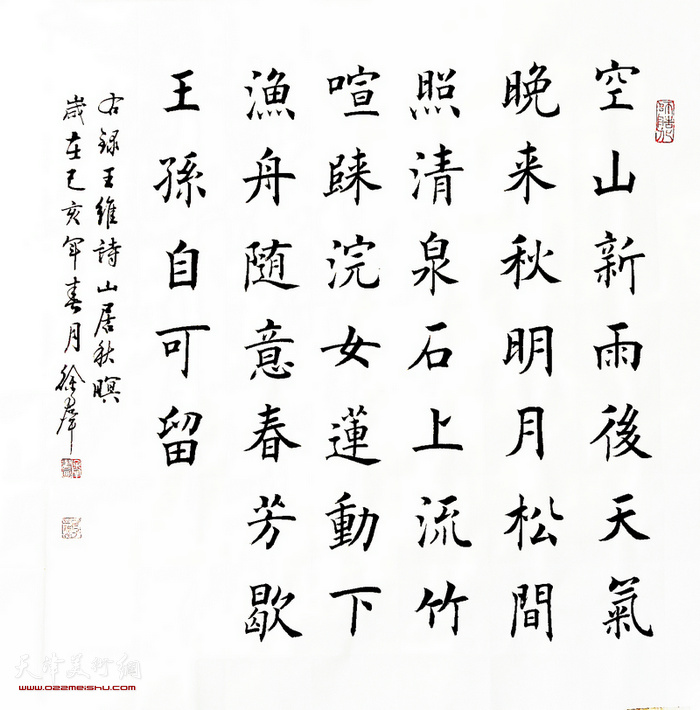 空山新雨後天氣
晚来秋明月松間
照清泉石上流竹
喧歸浣女蓮動下
漁舟随意春芳歇
王孫自可留
右録王維詩山居秋暝
歲在己亥年春月徐
天津美术网
www.022meishu.com